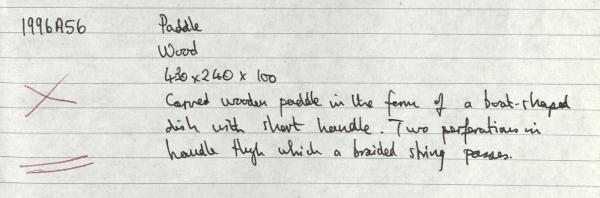 1996A56 Paddle
Wood
430 x 240 x 100
Carved wooden paddle in the form of a boat-shaped
dish with short handle. Two perforations in
handle thgh which a braided string passes.